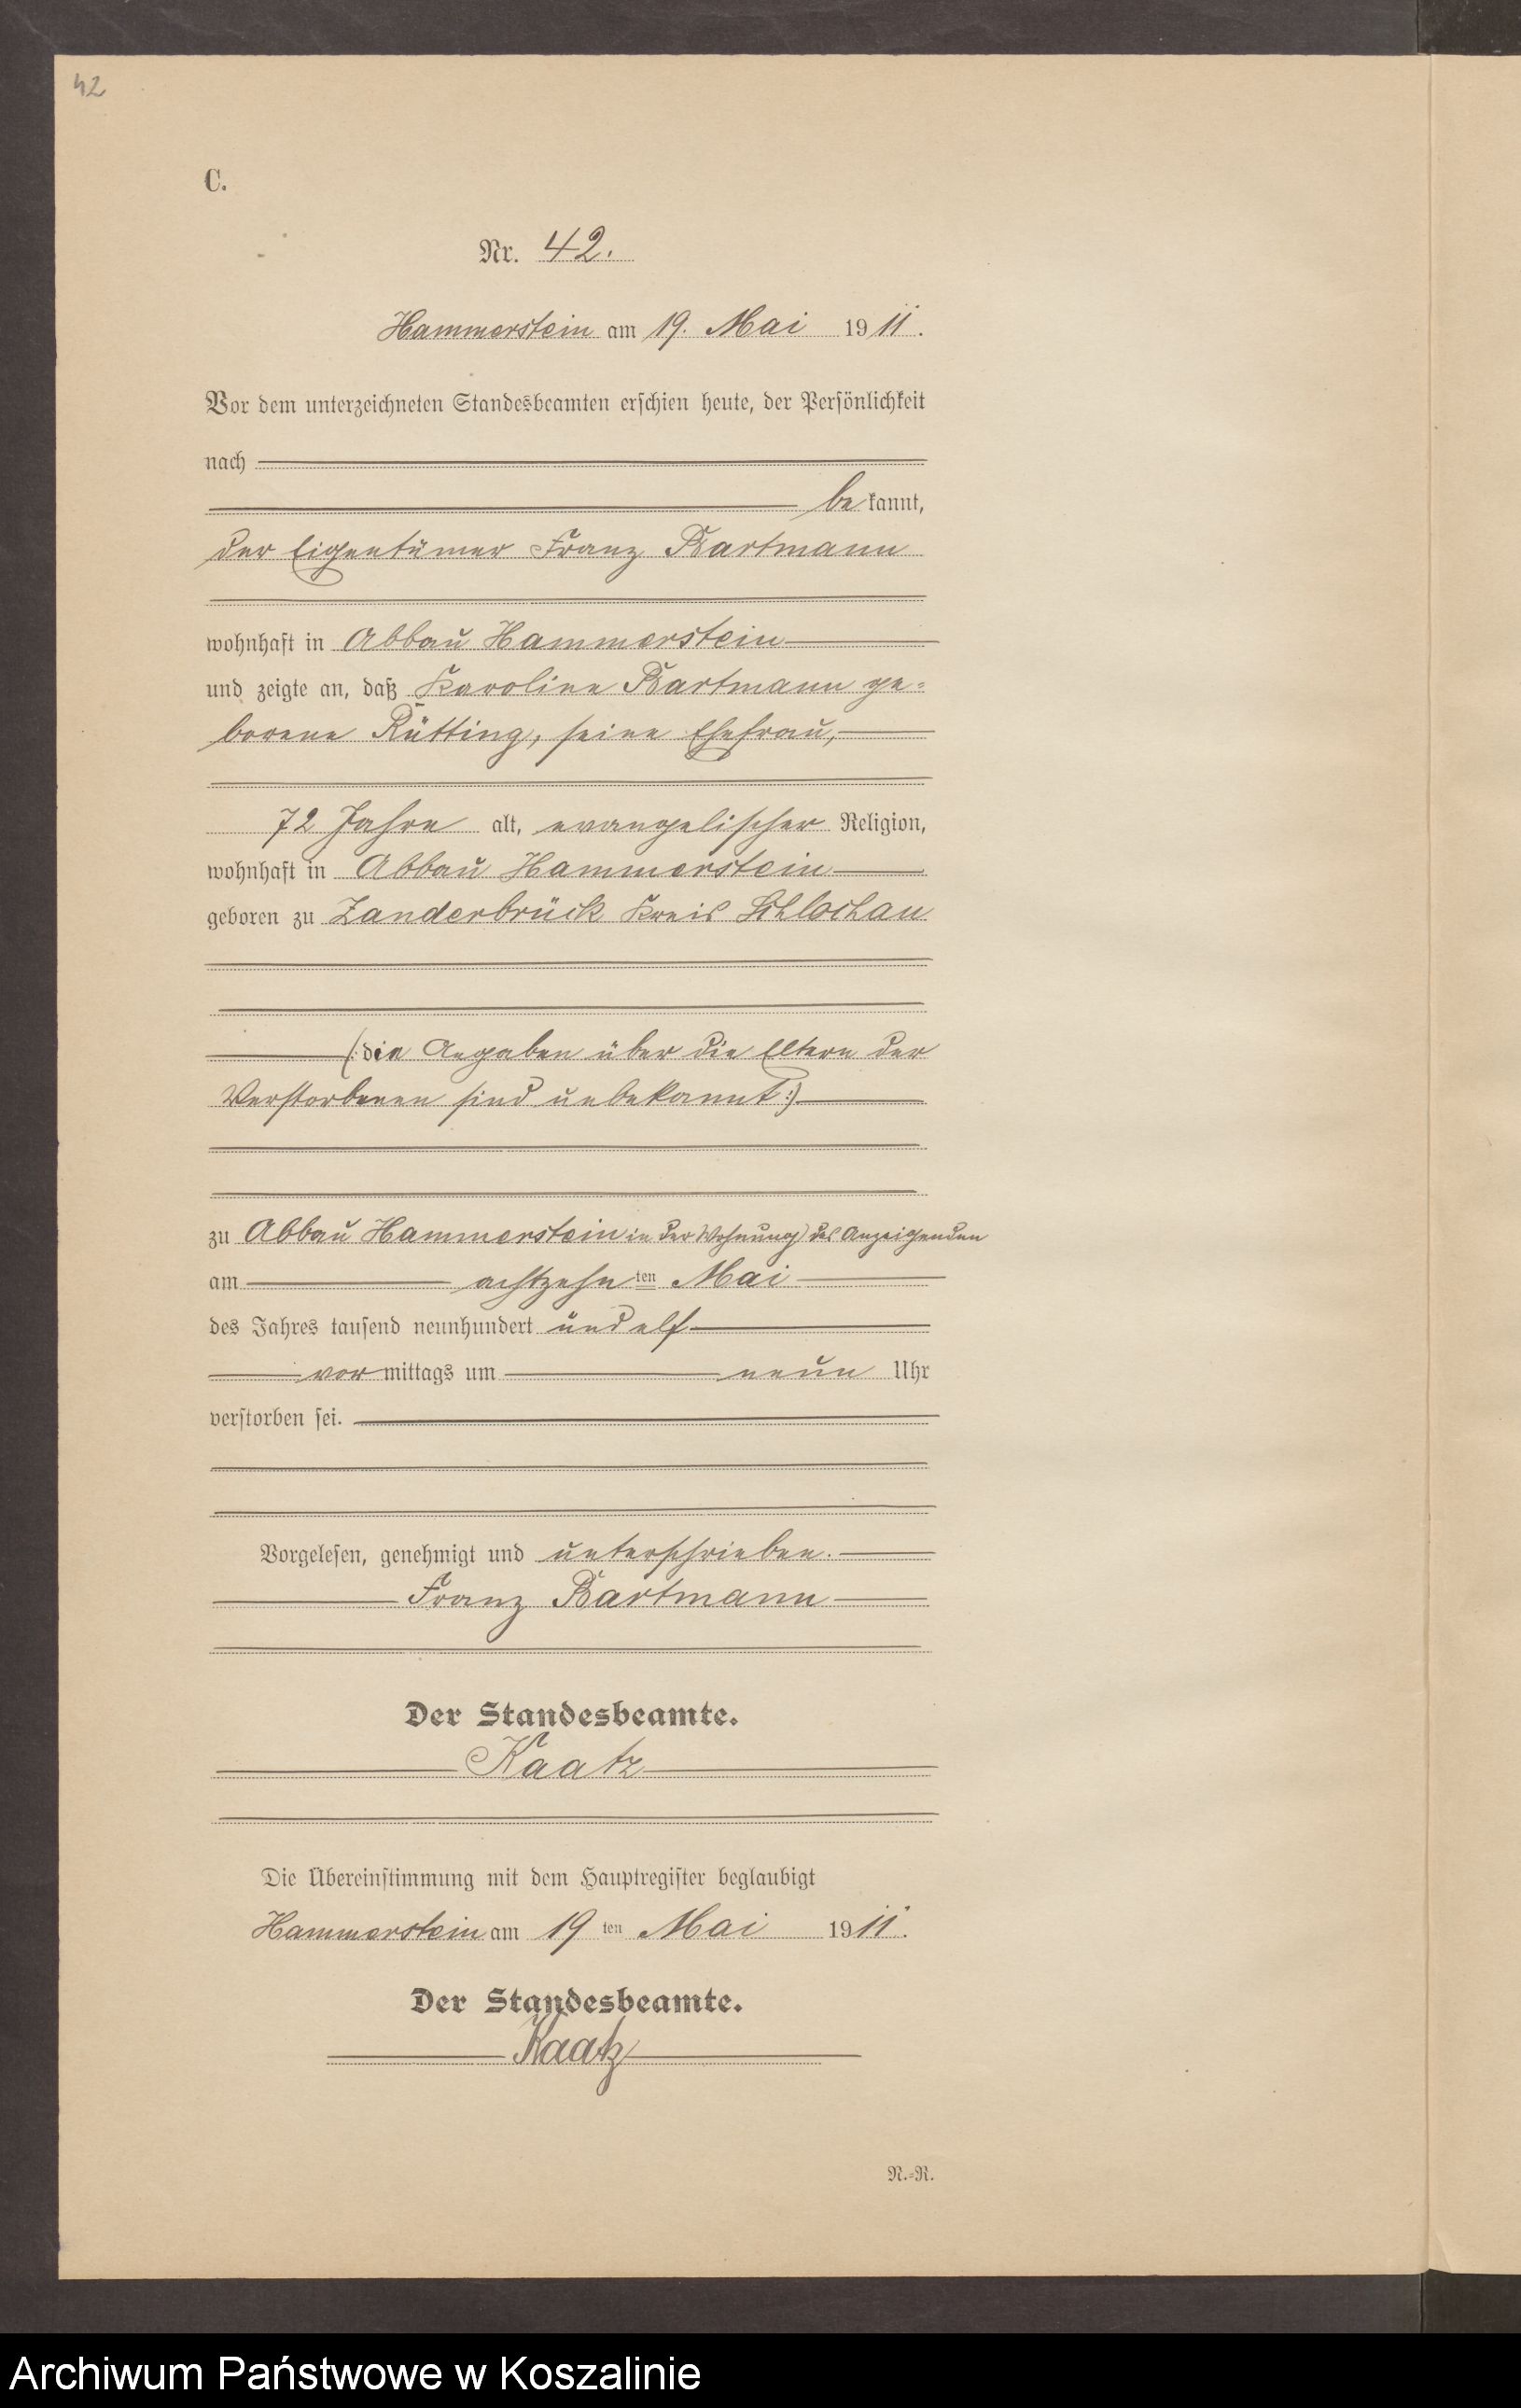 42
C.
Nr. 42.
Hammerstein am 19. Mai 1911.
Vor dem unterzeichneten Standesbeamten erschien heute, der Persönlichkeit
nach
bekannt,
der Eigentümer Franz Bartmann
wohnhaft in Abbau Hammerstein
und zeigte an, daß Karoline Bartmann ge-
borene Rütting, seine Ehefrau,
72 Jahre alt, evangelischer Religion,
wohnhaft in Abbau Hammerstein
geboren zu Zanderbrück Kreis Schlochau
(:die Angaben über die Eltern der
Verstorbenen sind unbekannt:)
zu Abbau Hammerstein in der Wohnung des Anzeigenden
am achtzehnten Mai
des Jahres tausend neunhundert und elf
vormittags um neun Uhr
verstorben sei.
Vorgelesen, genehmigt und unterschrieben.
Franz Bartmann
Der Standesbeamte.
Kaatz
Die Übereinstimmung mit dem Hauptregister beglaubigt
Hammerstein am 19ten Mai 1911.
Der Standesbeamte.
Kaatz
N.-R.
Archiwum Państwowe w Koszalinie